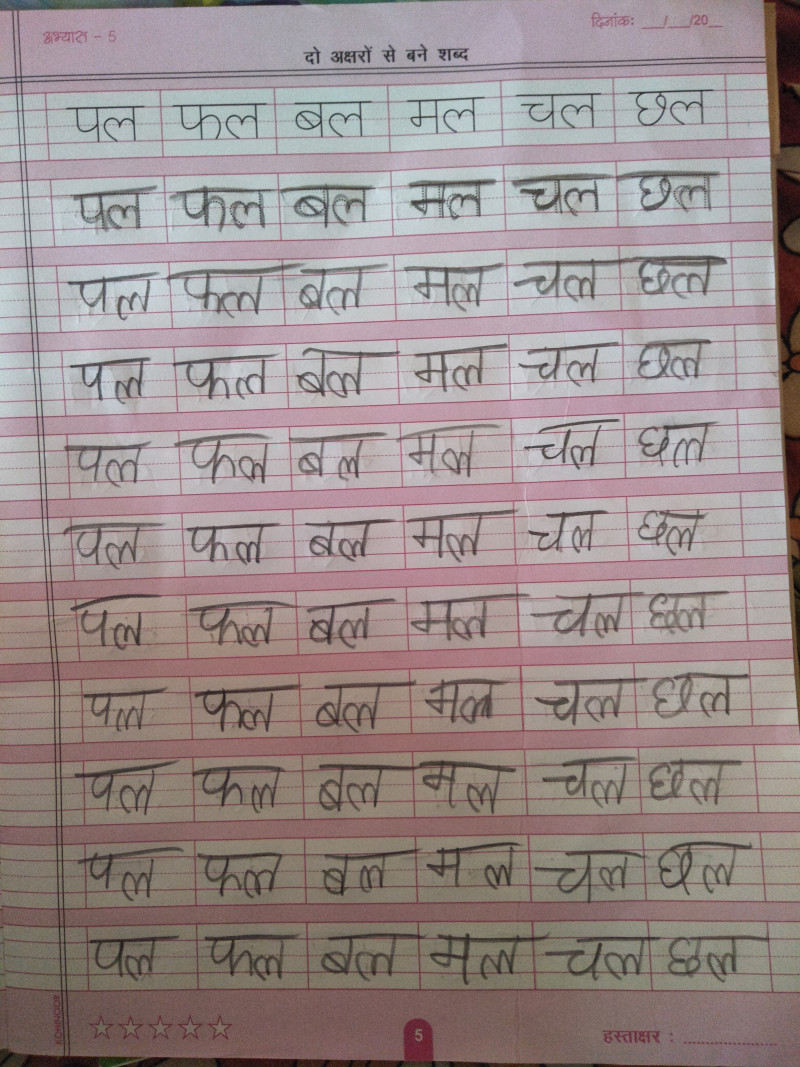 अभ्यास - 5 दिनांक: __/__/20__
दो अक्षरों से बने शब्द
पल फल बल मल चल छल
पल फल बल मल चल छल
पल फल बल मल चल छल
पल फल बल मल चल छल
पल फल बल मल चल छल
पल फल बल मल चल छल
पल फल बल मल चल छल
पल फल बल मल चल छल
पल फल बल मल चल छल
पल फल बल मल चल छल
पल फल बल मल चल छल
KOHINOOR
5 हस्ताक्षर : ......................